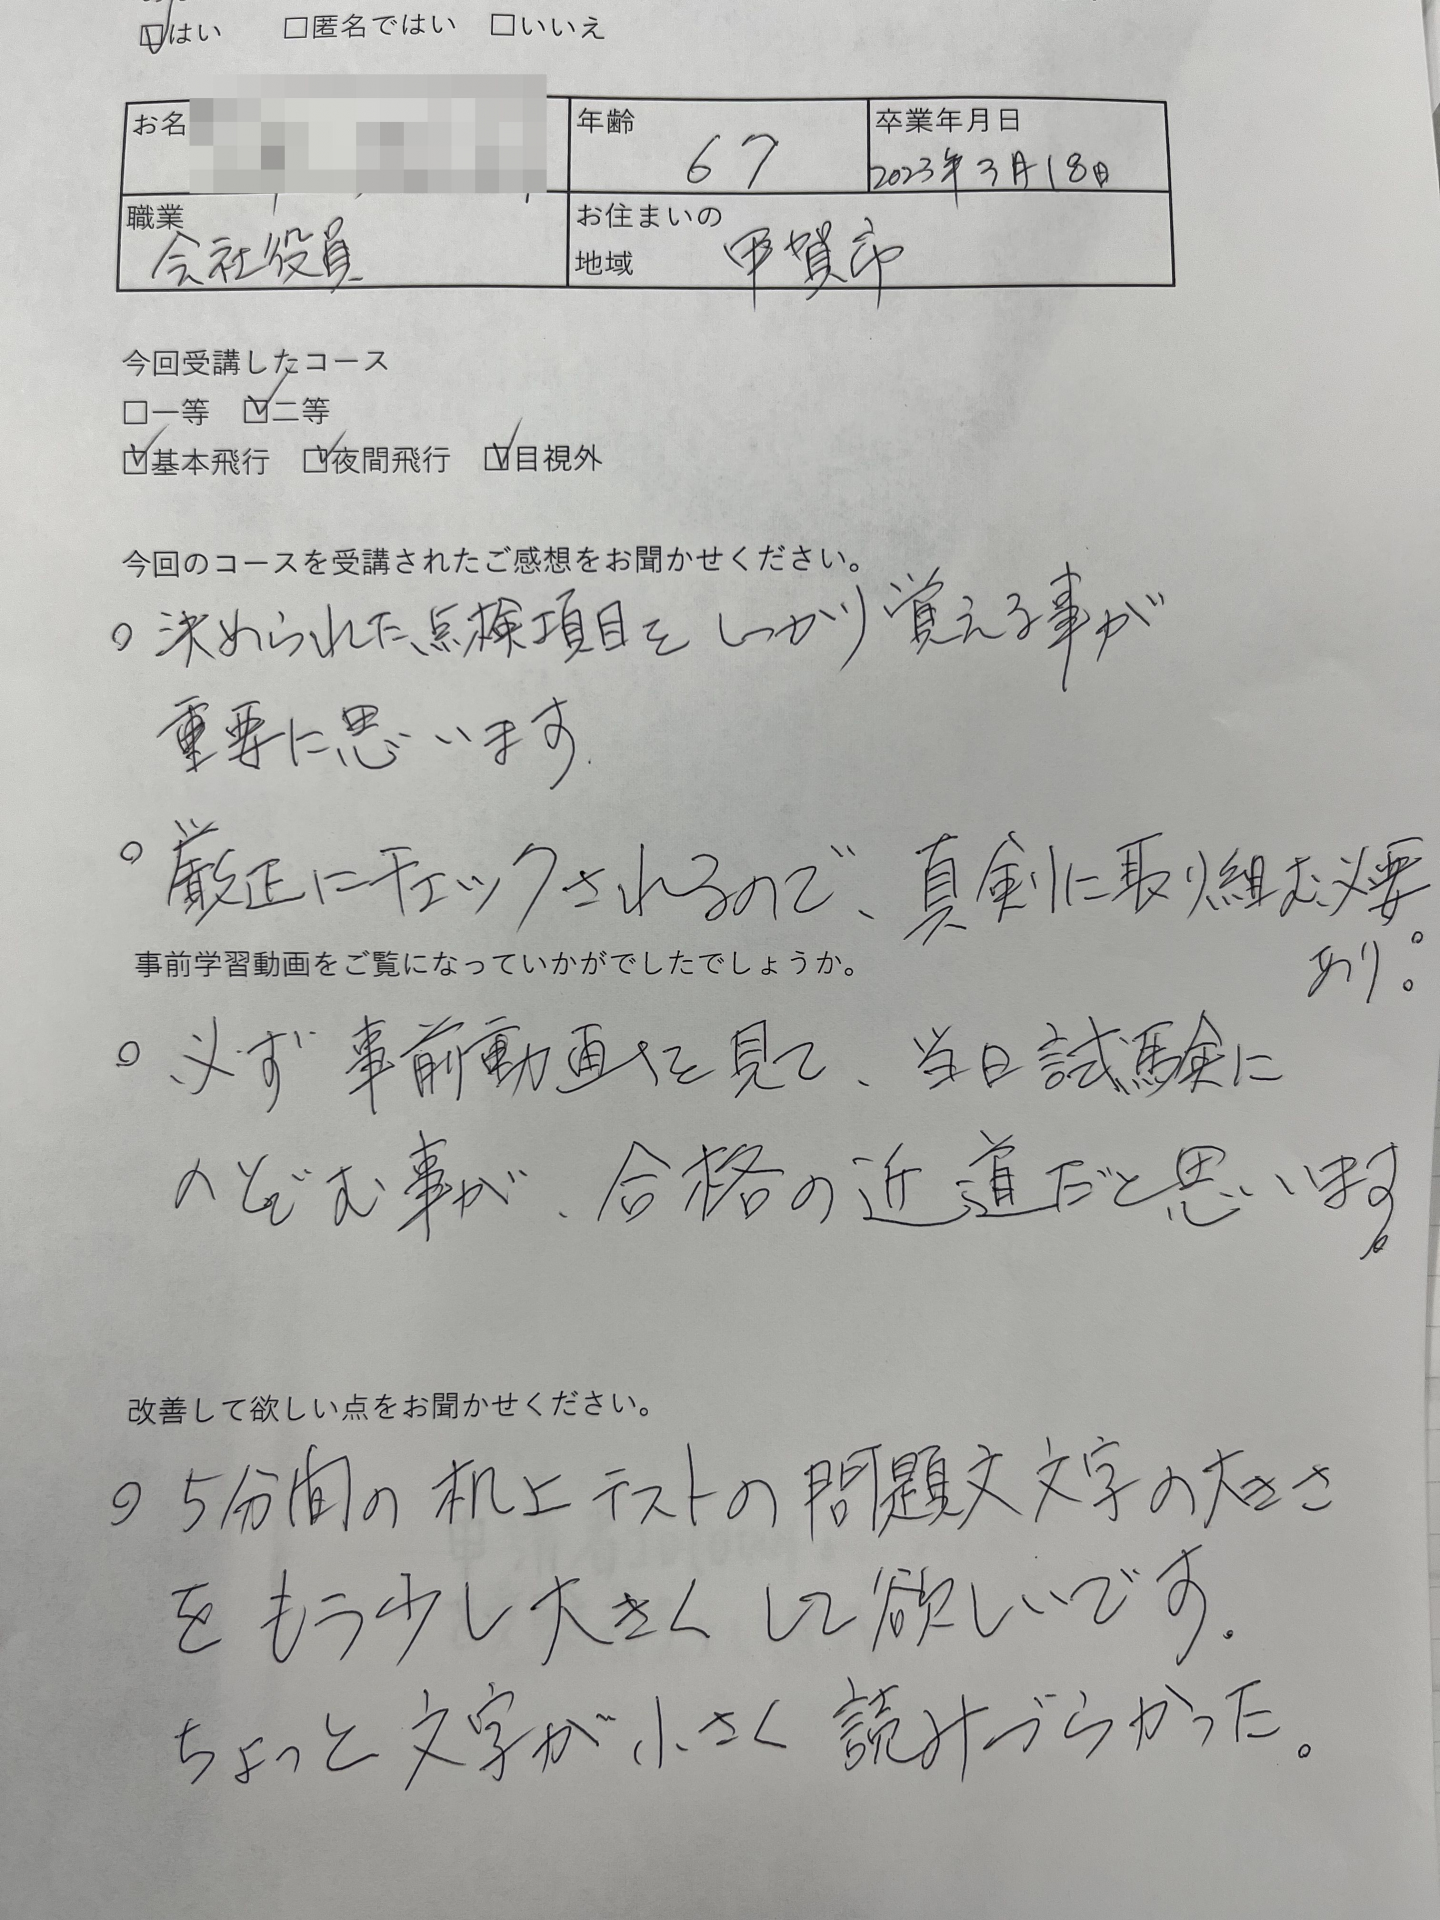 ☑はい □匿名ではい □いいえ
お名
年齢
67
卒業年月日
2023年3月18日
職業
会社役員
お住まいの
地域
甲賀市
今回受講したコース
□一等 ☑二等
☑基本飛行 ☑夜間飛行 ☑目視外
今回のコースを受講されたご感想をお聞かせください。
○決められた点検項目をしっかり覚える事が
重要に思います.
○厳正にチェックされるので、真剣に取り組む必要
あり。
事前学習動画をご覧になっていかがでしたでしょうか。
○必ず事前動画を見て、当日試験に
のぞむ事が、合格の近道だと思います。
改善して欲しい点をお聞かせください。
○5分間の机上テストの問題文文字の大きさ
をもう少し大きくして欲しいです.
ちょっと文字が小さく読みづらかった。